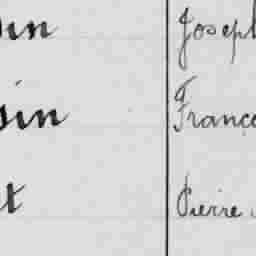 in Joseph
sin Franço
t Pierre